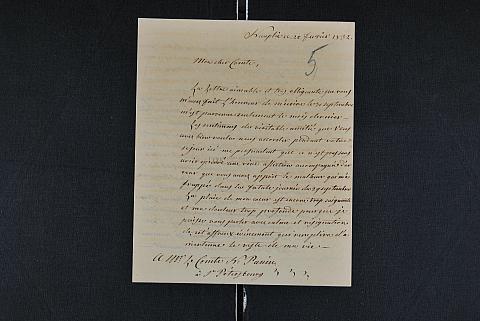 Nauplie le 20 Février 1832.
5
Mon cher Comte,
La lettre aimable et très obligeante que vous
m'avez fait l'honneur de m'écrire le 30 septembre
n'est parvenue seulement le mois dernier.
Les sentimens de véritable amitié que Vous
avez bien voulu nous accorder pendant votre
séjour ici me que ce n'est pas sans
une vive affection
que vous avez appris le malheur qui m'a
frappé dans la fatale journée du septembre
La plaie de mon cœur est encore trop saignante
et ma douleur trop profonde pour que je
puisse vous parler avec calme et résignation
de cet affreux événement qui remplira d'a-
mertume le reste de ma vie.—
A Mr. le Comte Panin
à St. Petersbourg